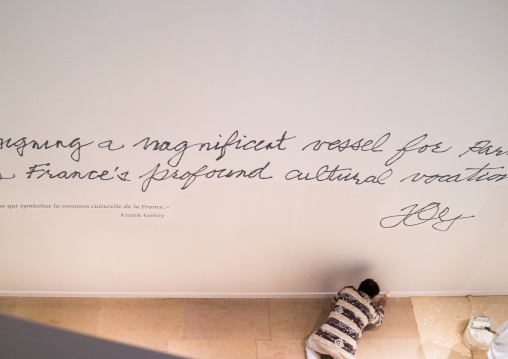 signing a magnificent vessel for Par
France's profound cultural vocation
qui symbolise la vocation culturelle de la France. »
Frank Gehry